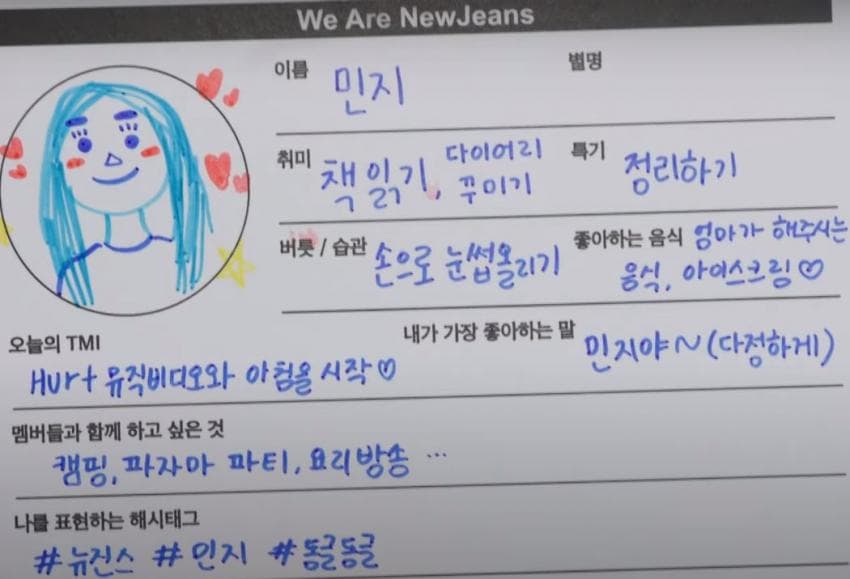 We Are NewJeans
이름 민지 별명
취미 책 읽기, 다이어리 꾸미기 특기 정리하기
버릇 / 습관 손으로 눈썹올리기 좋아하는 음식 엄마가 해주시는 음식, 아이스크림♡
오늘의 TMI
Hurt 뮤직비디오와 아침을 시작♡
내가 가장 좋아하는 말 민지야~(다정하게)
멤버들과 함께 하고 싶은 것
캠핑, 파자마 파티, 요리방송 …
나를 표현하는 해시태그
#뉴진스 #민지 #동글동글